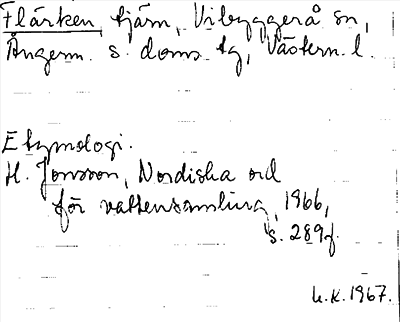 Flärken, tjärn, Vibyggerå sn,
Ångerm. s. doms. tg, Västern. l.
Etymologi.
H. Jonsson, Nordiska ord
för vattensamling, 1966,
s. 289f.
L.K. 1967.